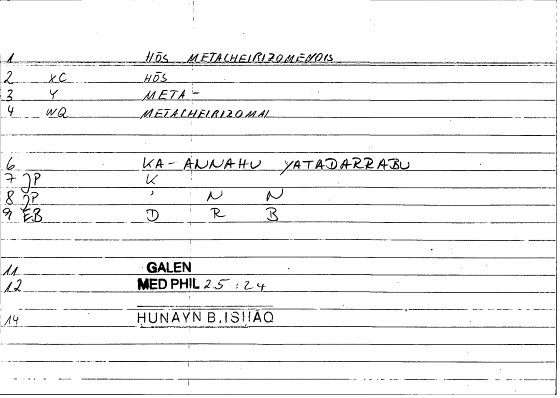 1 HŌS METACHEIRIZOMENOIS
2 XC HŌS
3 Y META-
4 WQ METACHEIRIZOMAI
6 KA-ANNAHU YATADARRABU
7 JP K
8 JP ' N N
9 EB D R B
11 GALEN
12 MED PHIL 25:24
14 HUNAYN B.ISHAQ